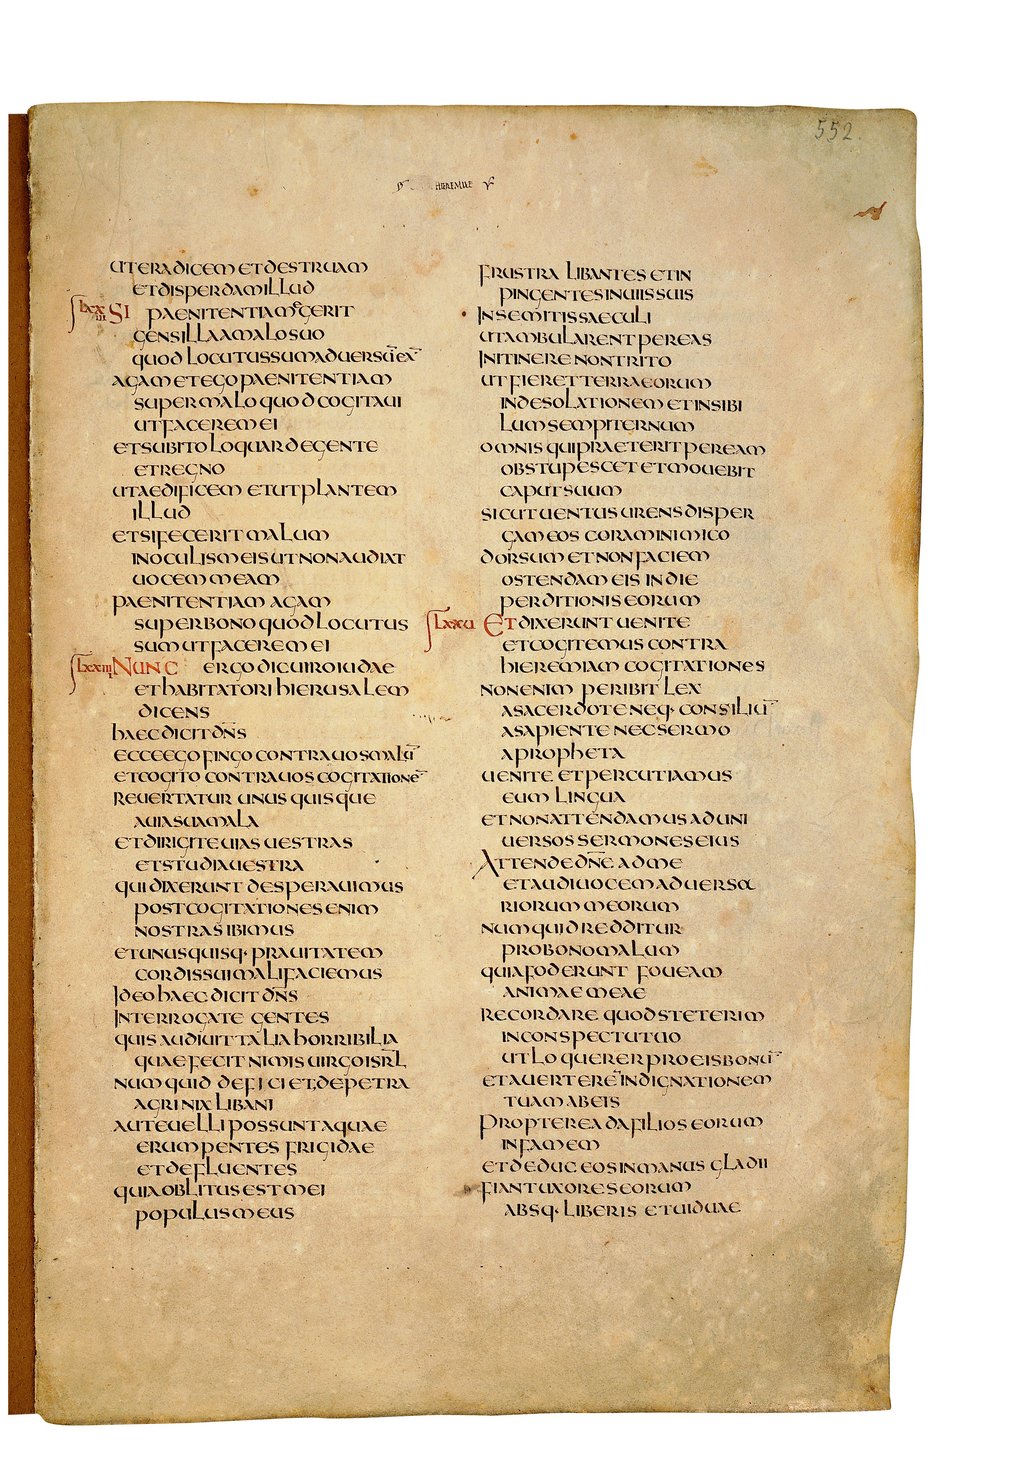 552.
HIEREMIAE
UT ERADICEM ET DESTRUAM
ET DISPERDAM ILLUD
LXXIII SI PAENITENTIAM EGERIT
GENS ILLA A MALO SUO
QUOD LOCUTUS SUM ADUERSŪ EĀ
AGAM ET EGO PAENITENTIAM
SUPER MALO QUOD COGITAUI
UT FACEREM EI
ET SUBITO LOQUAR DE GENTE
ET REGNO
UT AEDIFICEM ET UT PLANTEM
ILLUD
ET SI FECERIT MALUM
IN OCULIS MEIS UT NON AUDIAT
UOCEM MEAM
PAENITENTIAM AGAM
SUPER BONO QUOD LOCUTUS
SUM UT FACEREM EI
LXXIIII NUNC ERGO DIC UIRO IUDAE
ET HABITATORI HIERUSALEM
DICENS
HAEC DICIT DN̄S
ECCE EGO FINGO CONTRA UOS MALŪ
ET COGITO CONTRA UOS COGITATIONĒ
REUERTATUR UNUSQUISQUE
A UIA SUA MALA
ET DIRIGITE UIAS UESTRAS
ET STUDIA UESTRA
QUI DIXERUNT DESPERAUIMUS
POST COGITATIONES ENIM
NOSTRAS IBIMUS
ET UNUSQUISQ· PRAUITATEM
CORDIS SUI MALI FACIEMUS
IDEO HAEC DICIT DN̄S
INTERROGATE GENTES
QUIS AUDIUIT TALIA HORRIBILIA
QUAE FECIT NIMIS UIRGO ISRL̄
NUMQUID DEFICIET DE PETRA
AGRI NIX LIBANI
AUT EUELLI POSSUNT AQUAE
ERUMPENTES FRIGIDAE
ET DEFLUENTES
QUIA OBLITUS EST MEI
POPULUS MEUS
FRUSTRA LIBANTES ET IN
PINGENTES IN UIIS SUIS
IN SEMITIS SAECULI
UT AMBULARENT PER EAS
IN ITINERE NON TRITO
UT FIERET TERRA EORUM
IN DESOLATIONEM ET IN SIBI
LUM SEMPITERNUM
OMNIS QUI PRAETERIT PER EAM
OBSTUPESCET ET MOUEBIT
CAPUT SUUM
SICUT UENTUS URENS DISPER
GAM EOS CORAM INIMICO
DORSUM ET NON FACIEM
OSTENDAM EIS IN DIE
PERDITIONIS EORUM
LXXU ET DIXERUNT UENITE
ET COGITEMUS CONTRA
HIEREMIAM COGITATIONES
NON ENIM PERIBIT LEX
A SACERDOTE NEQ· CONSILIŪ
A SAPIENTE NEC SERMO
A PROPHETA
UENITE ET PERCUTIAMUS
EUM LINGUA
ET NON ATTENDAMUS AD UNI
UERSOS SERMONES EIUS
ATTENDE DN̄E AD ME
ET AUDI UOCEM ADUERSA
RIORUM MEORUM
NUMQUID REDDITUR
PRO BONO MALUM
QUIA FODERUNT FOUEAM
ANIMAE MEAE
RECORDARE QUOD STETERIM
IN CONSPECTU TUO
UT LOQUERER PRO EIS BONŪ
ET AUERTERĒ INDIGNATIONEM
TUAM AB EIS
PROPTEREA DA FILIOS EORUM
IN FAMEM
ET DEDUC EOS IN MANUS GLADII
FIANT UXORES EORUM
ABSQ· LIBERIS ET UIDUAE